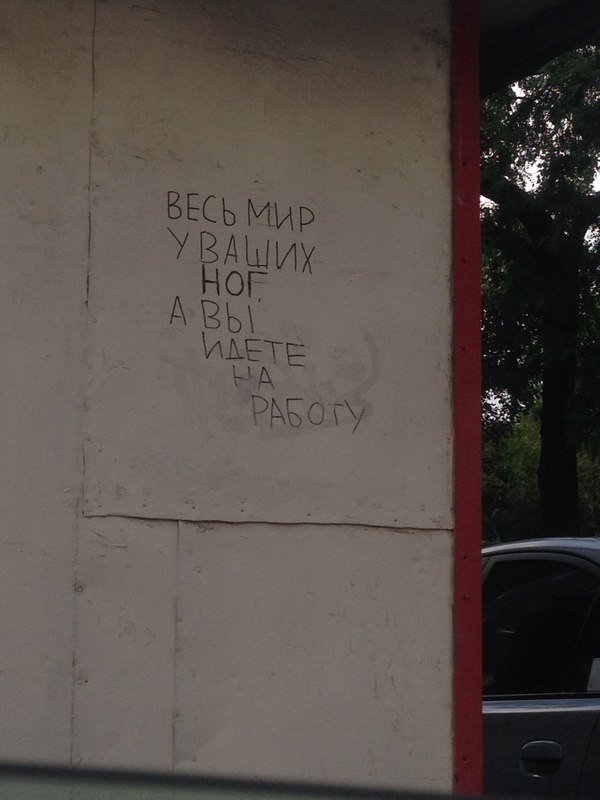 ВЕСЬ МИР
У ВАШИХ
НОГ,
А ВЫ
ИДЕТЕ
НА
РАБОТУ